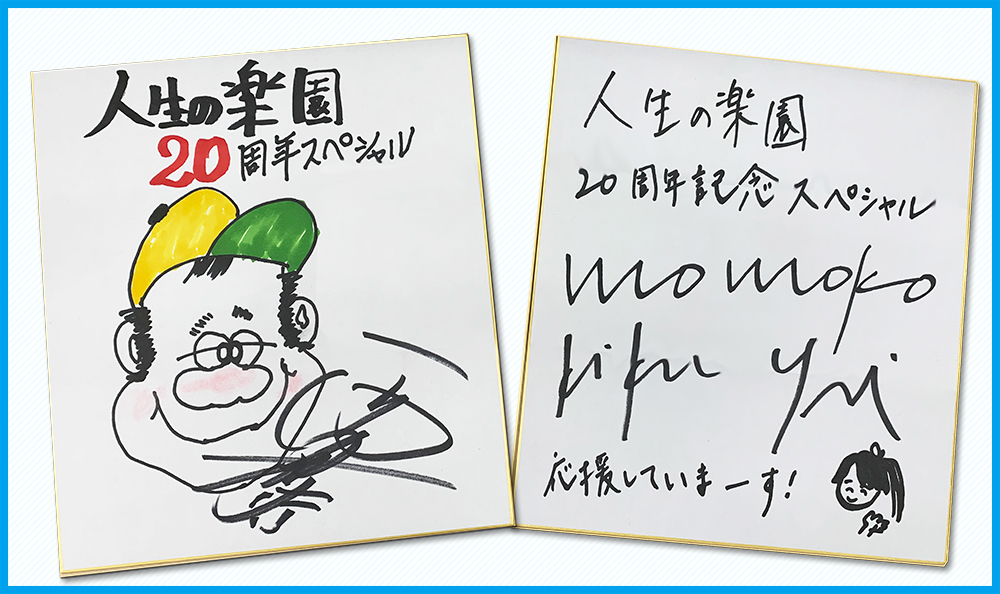 人生の楽園
20周年スペシャル
人生の楽園
20周年記念スペシャル
momoko
kikuchi
応援していまーす!